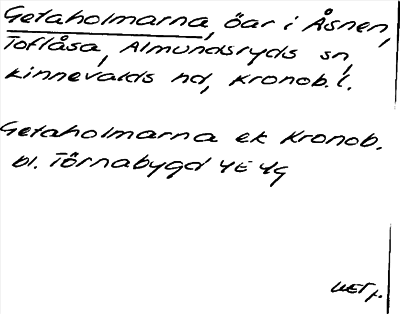 Getaholmarna, öar i Åsnen,
Toflåsa, Almundsryds sn,
Kinnevalds hd, Kronob. l.
Getaholmarna ek Kronob.
bl. Törnabygd 4E 4g